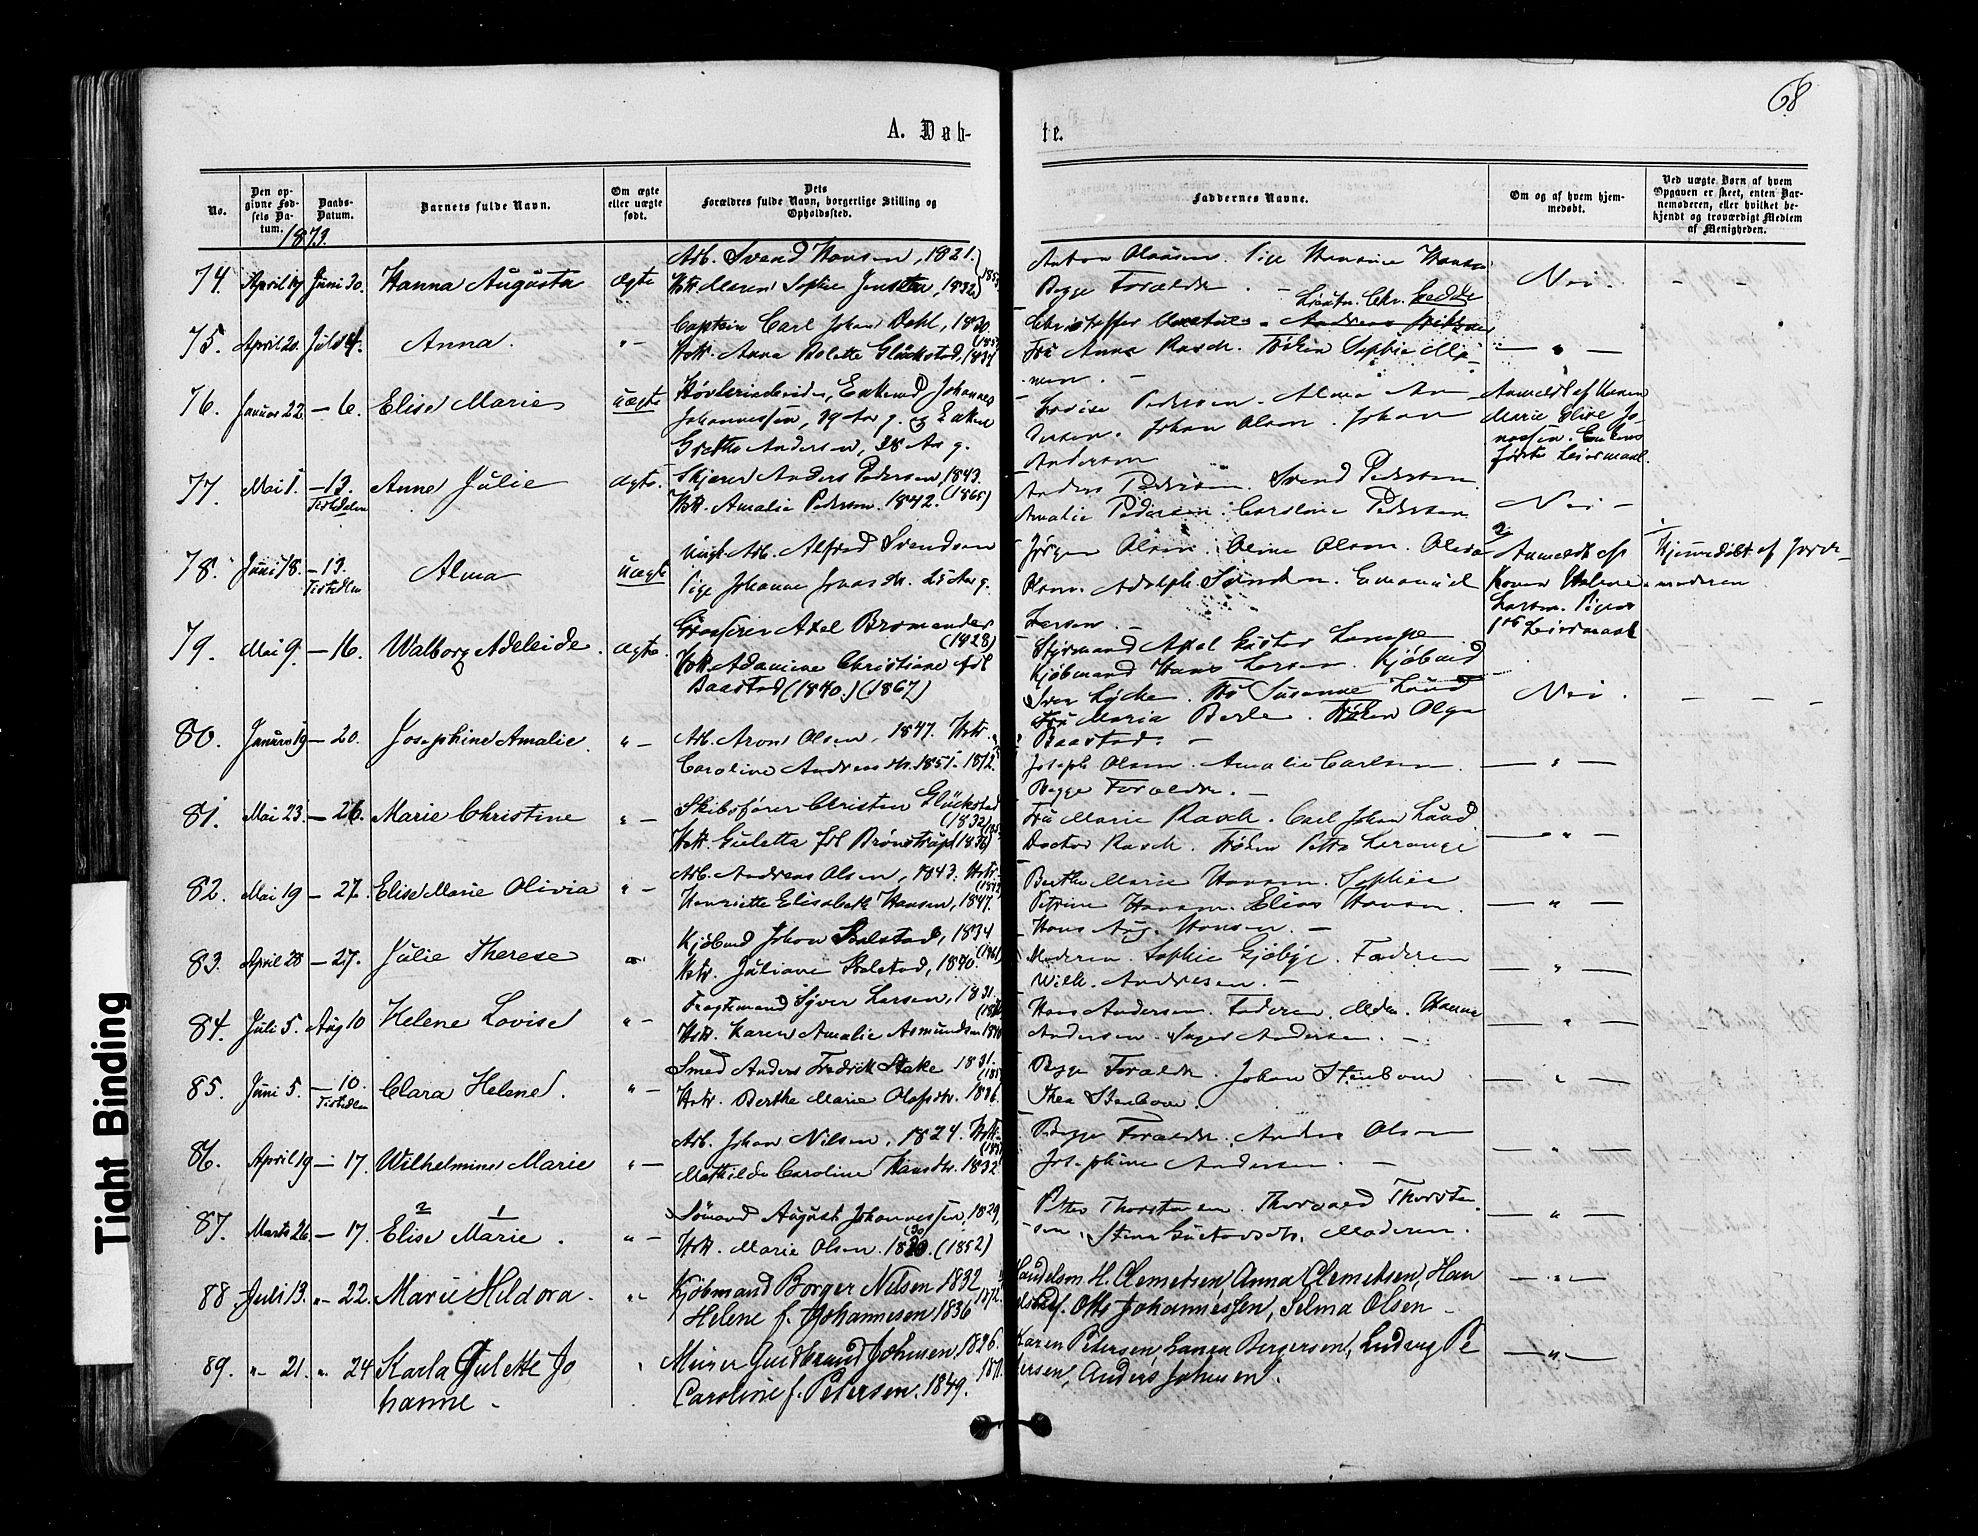 68
A. Døb-
te.
No.
Den op-
givne Fød-
sels Da-
tum.
Daabs-
Datum.
Barnets fulde Navn.
Om ægte
eller uægte
født.
Dets
Forældres fulde Navn, borgerlige Stilling og
Opholdssted.
Faddernes Navne.
Om og af hvem hjem-
medøbt.
Ved uægte Børn af hvem
Opgaven er skeet, enten Bar-
nemoderen, eller hvilket be-
kjendt og troværdigt Medlem
af Menigheden.
1873.
Arb. Svend Hansen, 1821.
74. April 19 Juni 30. Hanna Augusta Ægte
Maren Sophie 1832
Anton Olausen. Pige Hansine Hansen
Begge Forældre. —
Nei.
Captein Carl Johan Dahl, 1820.
75. April 20. Juli 4. Anna. " —
Anna Bolette Glückstad, 1834
Lieutn. Chr. Gedde
Christoffer
Fru Anna Rasch. Frøken Sophie
— " —
76. Januar 22. — 6. Elise Marie uægte
Enkemd Johannes
Johannessen, 29 Aar g. og Enken
Grethe Andersen, 28 Aar g.
Lovise Pedersen. Alma An
dersen. Johan Olsen. Johan
Andersen
Anmeldt af
Marie Elise Jo-
nassen. Enkens
første Leiermaal.
77. Mai 1. — 13. Anne Julie Ægte.
Tistedalen
Skjærer Anders Pedersen, 1843.
Amalie Pedersen. 1842. (1865)
Anders Pedersen. Svend Pedersen.
Amalie Pedersen. Caroline Pedersen
Nei —
78. Juni 18. — 13. Alma Uægte
Tistedlen
Ungk. Arb. Alfred Svendsen
Pige Johanne 25 Aar g.
Jørgen Olsen. Oline Olsen.
Adolph Svendsen. Emanuel
Larsen. —
Anmeldt af
Konen Helene
Larsen. Pigens
1ste Leiermaal
Hjemmedøbt af Jorde-
moderen
79. Mai 9. — 16. Walborg Adeleide. Ægte.
Grosserer Axel Bromander
(1828)
Adamine Christiane fdt
Baastad (1840.) (1867)
Styrmand Axel Gustav
Kjøbmand Hans Larsen. Kjøbmd
Iver Lycke. Fru Susanne Luud
Fru Maria Berle. Frøken Olga
Baastad. —
Nei.
80. Januar 19 — 20. Josephine Amalie. " —
Arb. Aron Olsen, 1847.
Caroline 1851. 1872.
Joseph Olsen. Amalie Carlsen.
Begge Forældre. —
— " —
81. Mai 23. — 26. Marie Christine " —
Skibsfører Christen Glückstad
(1832)
Guletta fdt Brønstrup (1836)
Fru Marie Rasch. Carl Johan Luud
Doctor Rasch. Frøken
— " —
82. Mai 19 — 27. Elise Marie Olivia " —
Arb. Andreas Olsen, 1843.
Henriette Elisabeth Hansen, 1847.
Berthe Marie Hansen. Sophie
Petrine Hansen. Elias Hansen.
Hans Aug. Hansen. —
— " —
83. April 28 — 27. Julie Therese
Kjøbmd Johan Bolstad, 1834
Juliane Bolstad, 1840.
Moderen. Sophie Gjøbye. Faderen
Wilh. Andresen. —
— " —
84. Juli 5. Aug 10 Helene Lovise " —
Fragtemand Syver Larsen, 1831.
Karen Amalie Asmundsen
Hans Andersen. Faderen. Hanna
Andersen. Inger Andersen. —
— " —
85. Juni 5. — 10. Clara Helene. " —
Tistedlen
Smed Anders Fredrik Stake 1831.
Berthe Marie Olafsdtr. 1836.
Begge Forældre. Johan Stenbom
Thea Stenbom.
— " —
86. April 19 — 17. Wilhelmine Marie " —
Arb. Johan Nilsen, 1824.
Mathilde Caroline Hansdtr. 1832
Begge Forældre. Anders Olsen
Josephine Andersen. —
— " —
2 1
87. Marts 26. — 17. Elise Marie. " —
Sømand August Johannessen, 1829,
Marie Olsen. 1830. (1852)
Petter Thorstensen. Thorvald Thorsten
sen. Stina Gustavsdtr. Moderen.
— " —
88 Juli 13. " 22. Marie Hildora. "
Kjøbmand Borger Nilsen 1832
Helene f. Johannesen 1836 1872.
Handelsm H. Clemetsen, Anna Clemetsen, Han
Otto Johannessen, Selma Olsen —
— " —
89. " 21. " 24 Karla Julette Jo
hanne —
Murer Gudbrand Johnsen, 1826.
Caroline f. Petersen. 1849.
Karen Petersen, Laura Bergersen, Ludvig Pe
tersen, Anders Johnsen.
— " —
Tight Binding